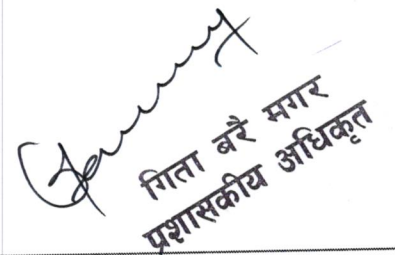 गिता बरै मगर
प्रशासकीय अधिकृत